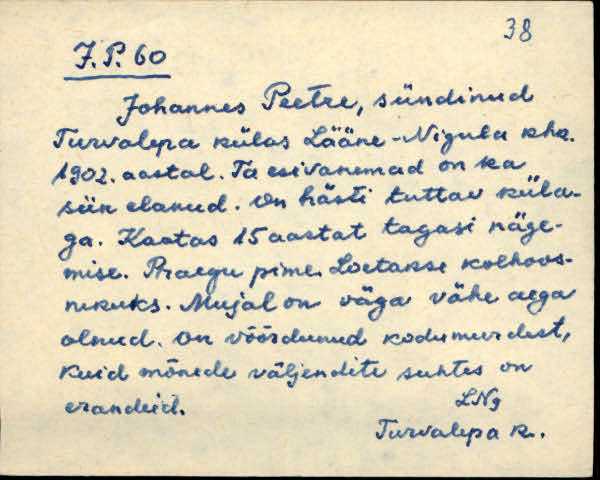 38
J.P. 60
Johannes Peetre, sündinud
Turvalepa külas Lääne-Nigula khk.
1902. aastal. Ta esivanemad on ka
siin elanud. On hästi tuttav küla-
ga. Kaotas 15 aastat tagasi näge-
mise. Praegu pime. Loetakse kolhoos-
nikuks. Mujal on väga vähe aega
olnud. On võõrdunud kodumurdest,
kuid mõnede väljendite suhtes on
erandeid.
LNg
Turvalepa k.